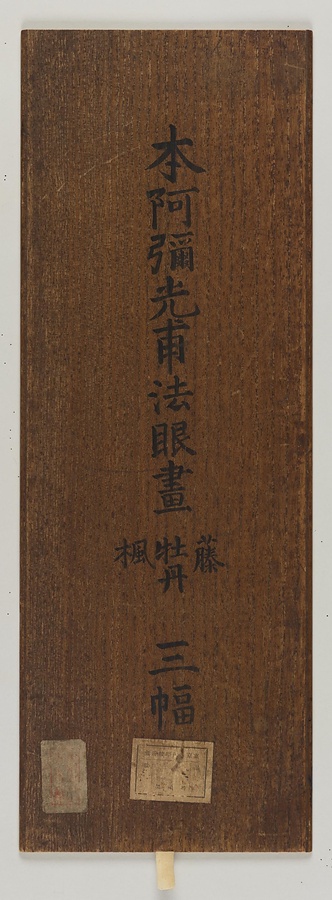 本阿彌光甫法眼畫
藤
牡丹
楓
三幅